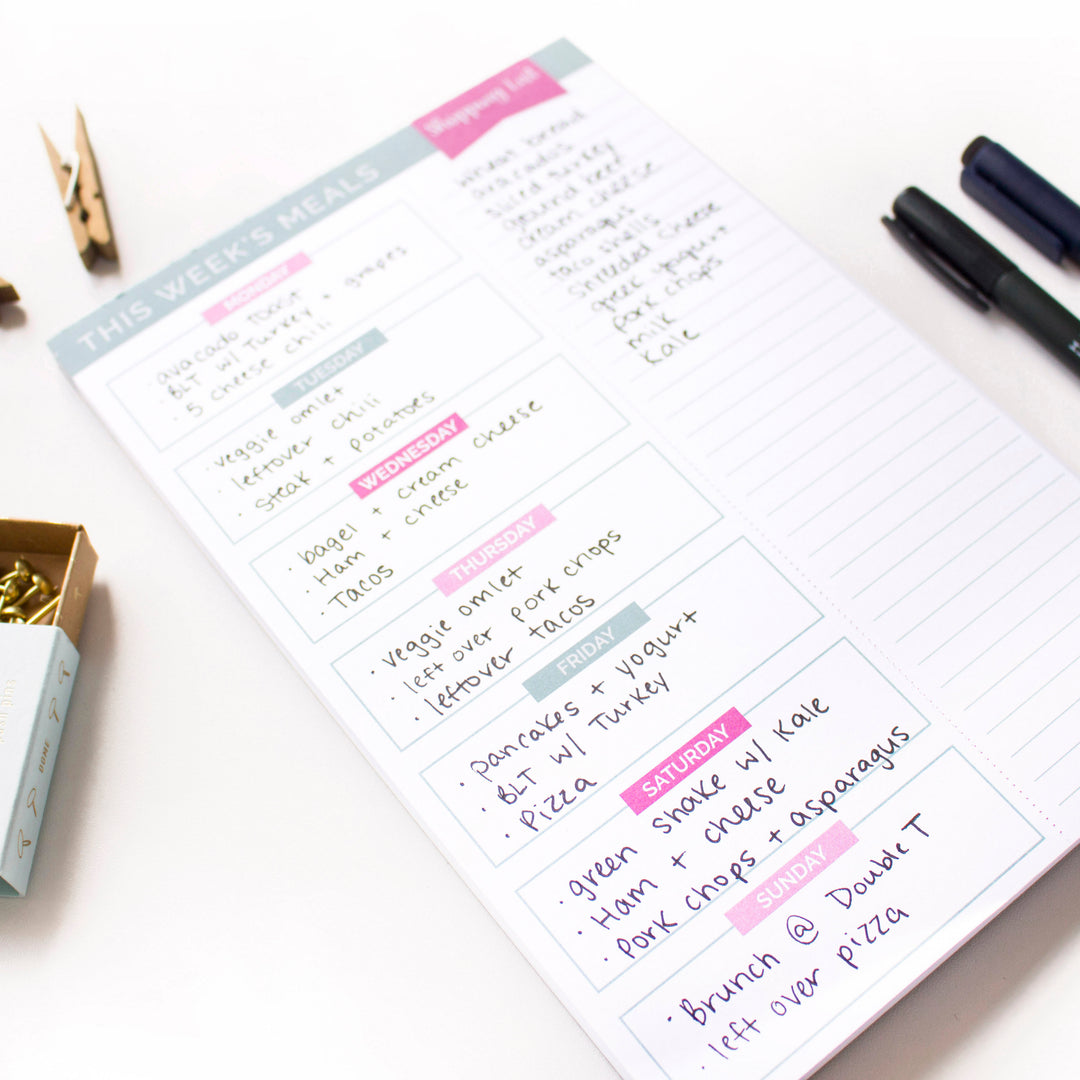 THIS WEEK'S MEALS
MONDAY
· avacado toast
· BLT w/ Turkey + grapes
· 5 cheese chili
TUESDAY
· veggie omlet
· leftover chili
· steak + potatoes
WEDNESDAY
· bagel + cream cheese
· Ham + cheese
· Tacos
THURSDAY
· veggie omlet
· left over pork chops
· leftover tacos
FRIDAY
· pancakes + yogurt
· BLT w/ Turkey
· Pizza
SATURDAY
· green shake w/ Kale
· Ham + cheese
· Pork chops + asparagus
SUNDAY
· Brunch @ Double T
· left over pizza
Shopping List
wheat bread
avacados
sliced turkey
ground beef
cream cheese
asparagus
taco shells
Shredded Cheese
greek yogurt
pork chops
milk
Kale
DONE